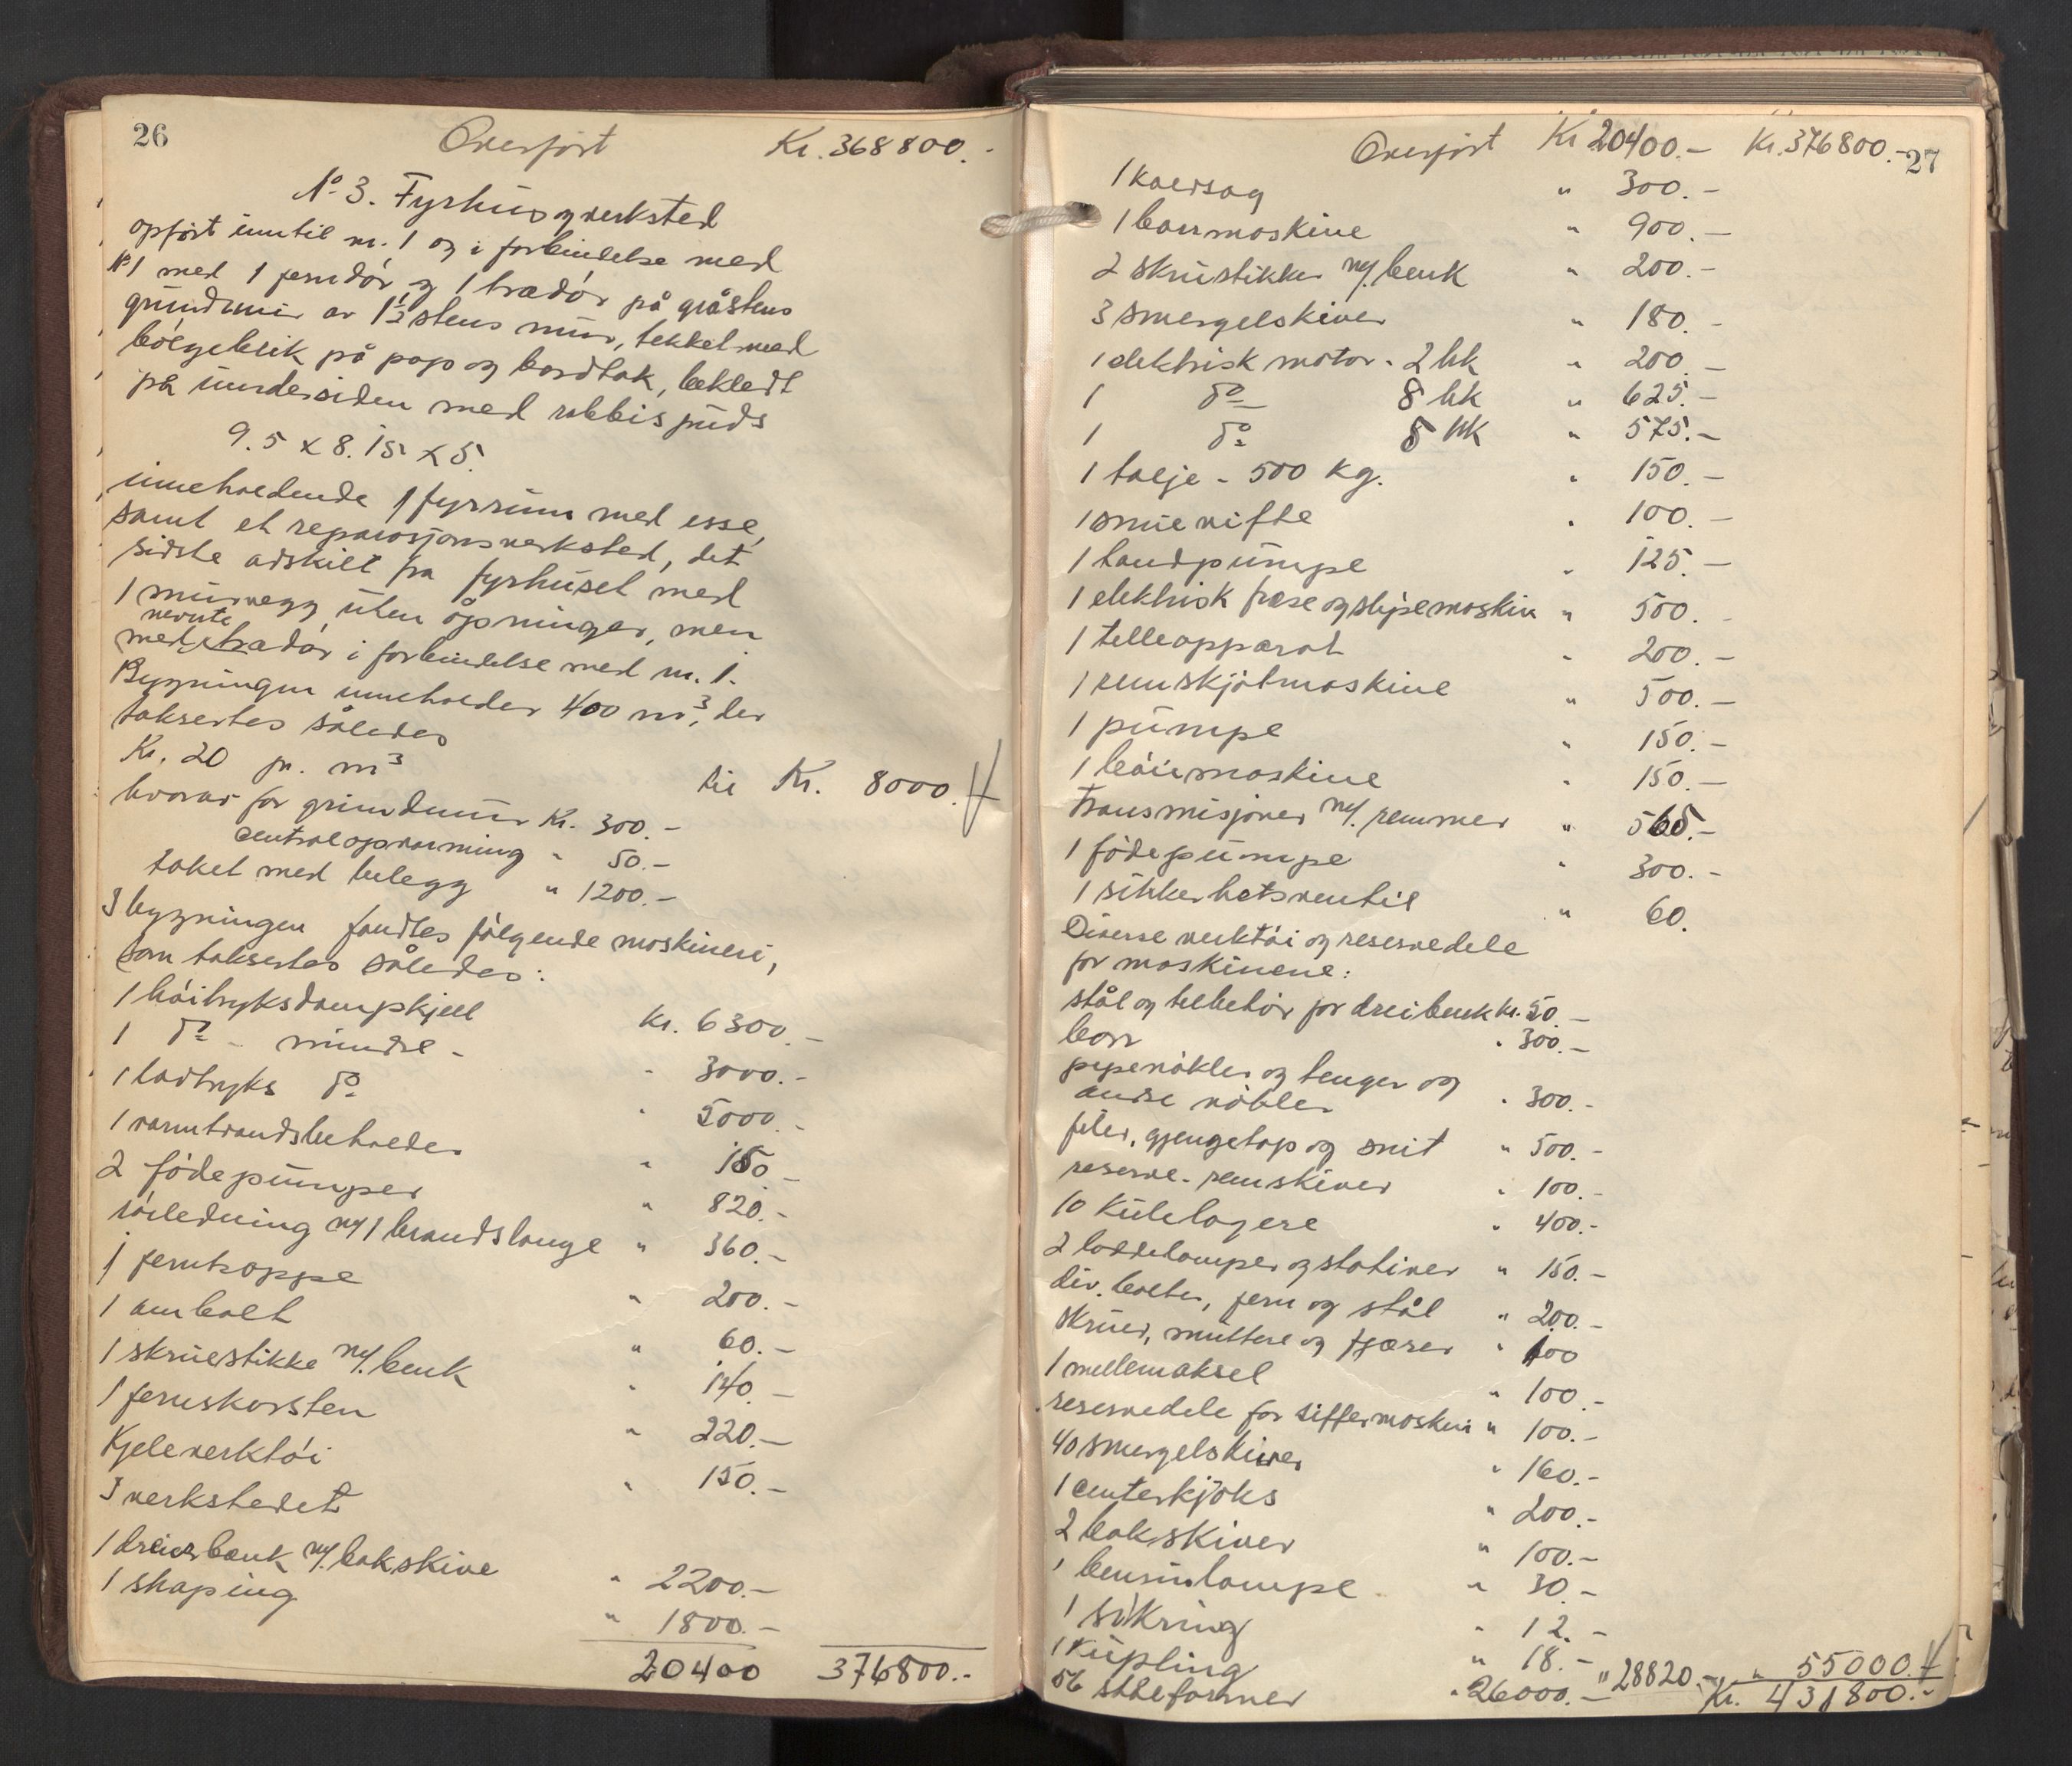 26
Overført Kr. 368800.-
No 3. Fyrhus og verksted
opført inntil nr. 1 og i forbindelse med
No 1 med 1 jerndør og 1 trædør på gråstens
grundmur av 1½ stens mur, tekket med
bølgeblik på papp og bordtak, bekledt
på undersiden med rabbispuds
9.5 x 8.15 x 5.
inneholdende 1 fyrrum med esse,
samt et reparasjonsverksted, det
sidste adskilt fra fyrhuset med
1 murvegg uten åpninger, men
med nevnte trædør i forbindelse med nr. 1.
Bygningen inneholder 400 m3, der
taksertes således
Kr. 20 pr. m3 til Kr. 8000.-
hvorav for grundmur Kr. 300.-
centralopvarming " 50.-
taket med belegg " 1200.-
I bygningen fandtes følgende maskineri,
som taksertes således:
1 høitryksdampkjell Kr. 6300.-
1 do - mindre - " 3000.-
1 lavtryks do " 5000.-
1 varmtvandsbeholder " 150.-
2 fødepumper " 820.-
rørledning m/ 1 brandslange " 360.-
1 jerntrappe " 200.-
1 ambolt " 60.-
1 skruestikke m/. benk " 140.-
1 jernskorsten " 220.-
Kjeleverktøi " 150.-
I verkstedet
1 dreierbænk m/. bakskive " 2200.-
1 shaping " 1800.-
20400 376800.-
27
Overført Kr 20400.- Kr. 376800.-
1 kaldsag " 300.-
1 borrmaskine " 900.-
2 skrustikker m/. benk " 200.-
3 smergelskiver " 180.-
1 elektrisk motor - 2 hk " 200.-
1 do 8 hk " 625.-
1 do 5 hk " 575.-
1 talje - 500 kg. " 150.-
1 smievifte " 100.-
1 handpumpe " 125.-
1 elektrisk frese og slipemaskin " 500.-
1 telleapparat " 200.-
1 remskjøtmaskine " 500.-
1 pumpe " 150.-
1 bøiemaskine " 150.-
Transmisjoner m/. remmer " 565.-
1 fødepumpe " 300.-
1 sikkerhetsventil " 60.
Diverse verktøi og reservedele
for maskinene:
stål og tilbehør for dreibenk kr. 50.-
borr " 300.-
pipenøkler og tenger og
andre nøkler " 300.-
filer, gjengetap og snit " 500.-
reserve-remskiver " 100.-
10 kulelagere " 400.-
2 loddelamper og stativer " 150.-
div. bolter, jern og stål " 200.-
skruer, muttere og fjærer " 100
1 mellemaksel " 100.-
reservedele for siffermaskin " 100.-
40 smergelskiver " 160.-
1 centerkjoks " 200.-
2 bakskiver " 100.-
1 bensinlampe " 30.-
1 sikring " 12.-
1 kupling " 18.-
56 stålformer " 26000.- " 28820.- " 55000.-
Kr. 431800.-